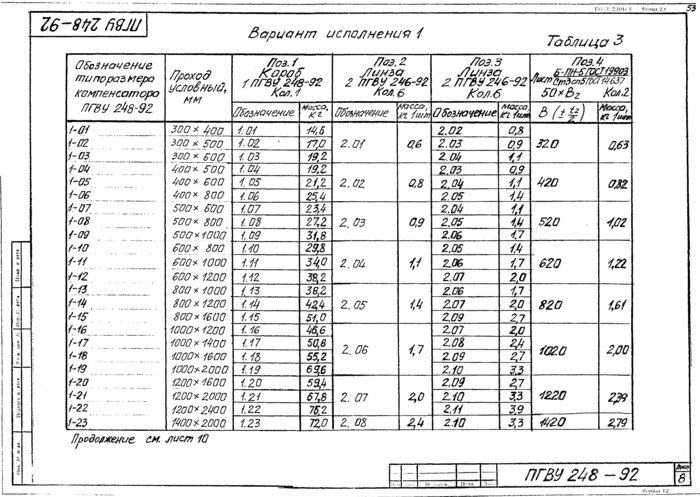 ПГВУ 248-92
53
Вариант исполнения 1
Таблица 3
Обозначение типоразмера компенсатора ПГВУ 248-92 | Проход условный, мм | Поз.1 Короб 1 ПГВУ 248-92 Кол.1 | Поз.2 Линза 2 ПГВУ 246-92 Кол.6 | Поз.3 Линза 2 ПГВУ 246-92 Кол.6 | Поз.4 Лист Б-ПН-Б ГОСТ 19903 Ст3сп5 ГОСТ 14637 50×B₂ Кол.2
Обозначение | Масса, кг | Обозначение | Масса, кг 1шт | Обозначение | Масса, кг 1шт | B | Масса, кг 1шт
1-01 300×400 1.01 14,6 2.02 0,8
1-02 300×500 1.02 17,0 2.01 0,6 2.03 0,9 320 0,63
1-03 300×600 1.03 19,2 2.04 1,1
1-04 400×500 1.04 19,2 2.03 0,9
1-05 400×600 1.05 21,2 2.02 0,8 2.04 1,1 420 0,82
1-06 400×800 1.06 25,4 2.05 1,4
1-07 500×600 1.07 23,4 2.04 1,1
1-08 500×800 1.08 27,2 2.03 0,9 2.05 1,4 520 1,02
1-09 500×1000 1.09 31,8 2.06 1,7
1-10 600×800 1.10 29,8 2.05 1,4
1-11 600×1000 1.11 34,0 2.04 1,1 2.06 1,7 620 1,22
1-12 600×1200 1.12 38,2 2.07 2,0
1-13 800×1000 1.13 38,2 2.06 1,7
1-14 800×1200 1.14 42,4 2.05 1,4 2.07 2,0 820 1,61
1-15 800×1600 1.15 51,0 2.09 2,7
1-16 1000×1200 1.16 46,6 2.07 2,0
1-17 1000×1400 1.17 50,8 2.06 1,7 2.08 2,4 1020 2,00
1-18 1000×1600 1.18 55,2 2.09 2,7
1-19 1000×2000 1.19 69,6 2.10 3,3
1-20 1200×1600 1.20 59,4 2.09 2,7
1-21 1200×2000 1.21 67,8 2.07 2,0 2.10 3,3 1220 2,39
1-22 1200×2400 1.22 76,2 2.11 3,9
1-23 1400×2000 1.23 72,0 2.08 2,4 2.10 3,3 1420 2,79
Продолжение см. лист 10
ПГВУ 248-92
Лист
8